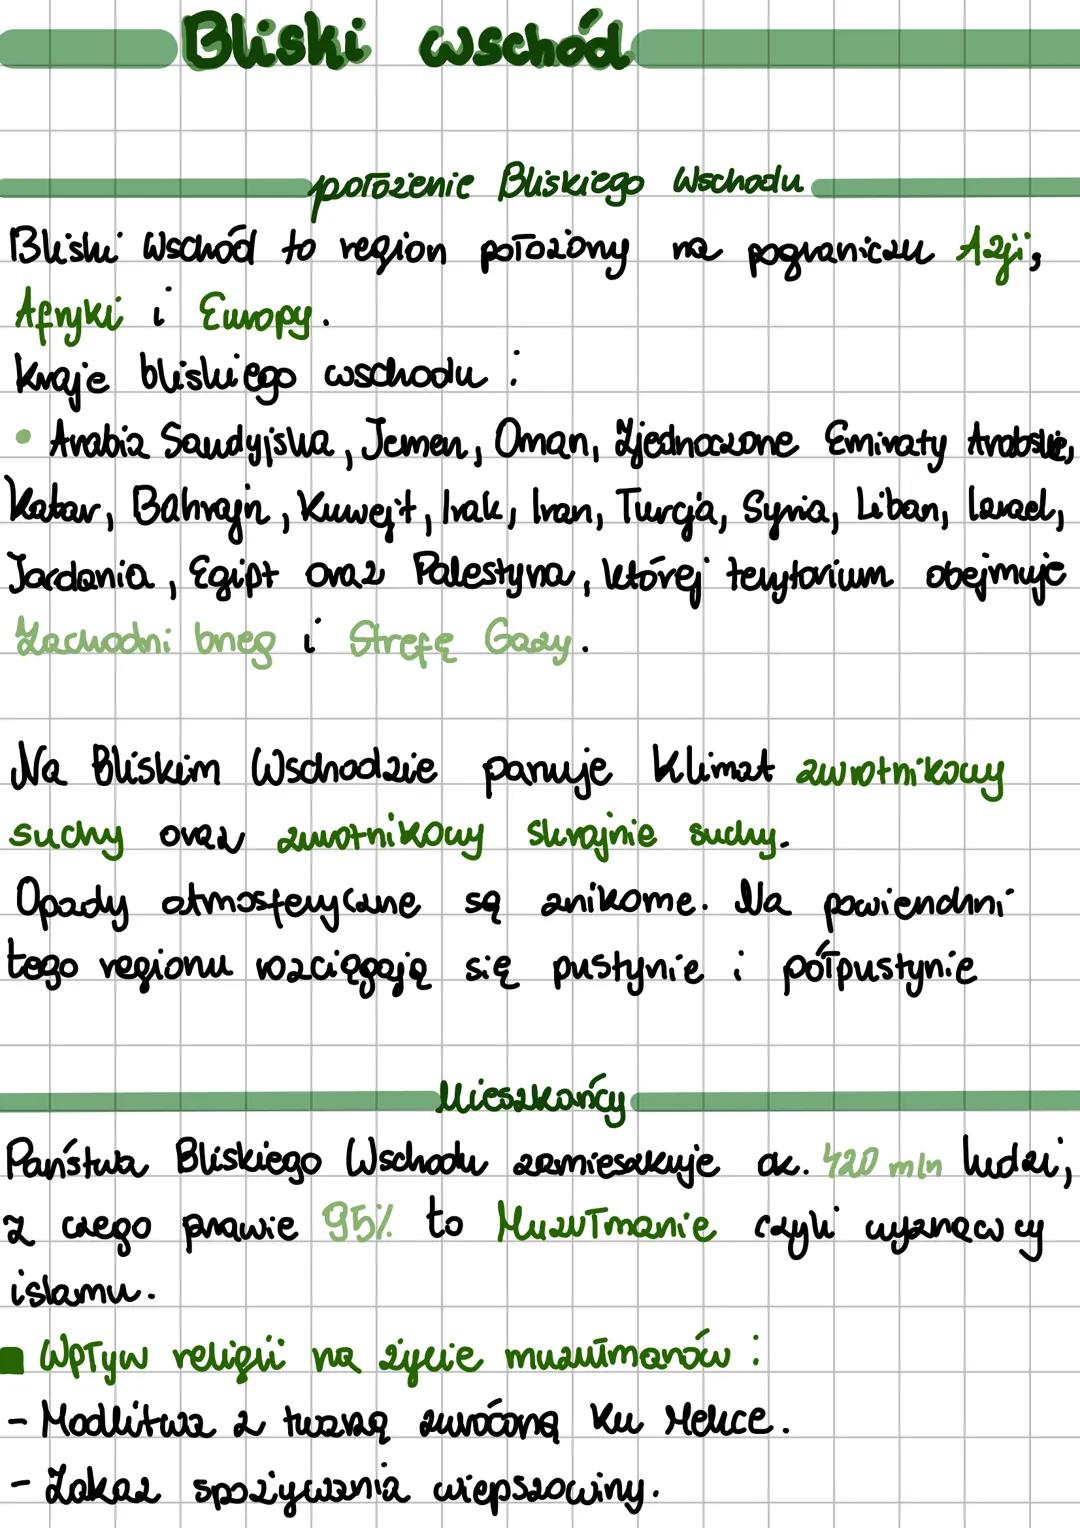 Bliski wschód
położenie Bliskiego Wschodu
Bliski Wschód to region położony na pograniczu Azji,
Afryki i Europy.
Kraje bliskiego wschodu :
• Arabia Saudyjska, Jemen, Oman, Zjednoczone Emiraty Arabskie,
Katar, Bahrajn, Kuwejt, Irak, Iran, Turcja, Syria, Liban, Izrael,
Jordania, Egipt oraz Palestyna, której terytorium obejmuje
Zachodni brzeg i Strefę Gazy.
Na Bliskim Wschodzie panuje Klimat zwrotnikowy
suchy oraz zwrotnikowy skrajnie suchy.
Opady atmosferyczne są znikome. Na powierzchni
tego regionu rozciągają się pustynie i półpustynie
Mieszkańcy
Państwa Bliskiego Wschodu zamieszkuje ok. 420 mln ludzi,
z czego prawie 95% to Muzułmanie czyli wyznawcy
islamu.
Wpływ religii na życie muzułmanów :
- Modlitwa z twarzą zwróconą Ku Mekce.
- Zakaz spożywania wieprzowiny.